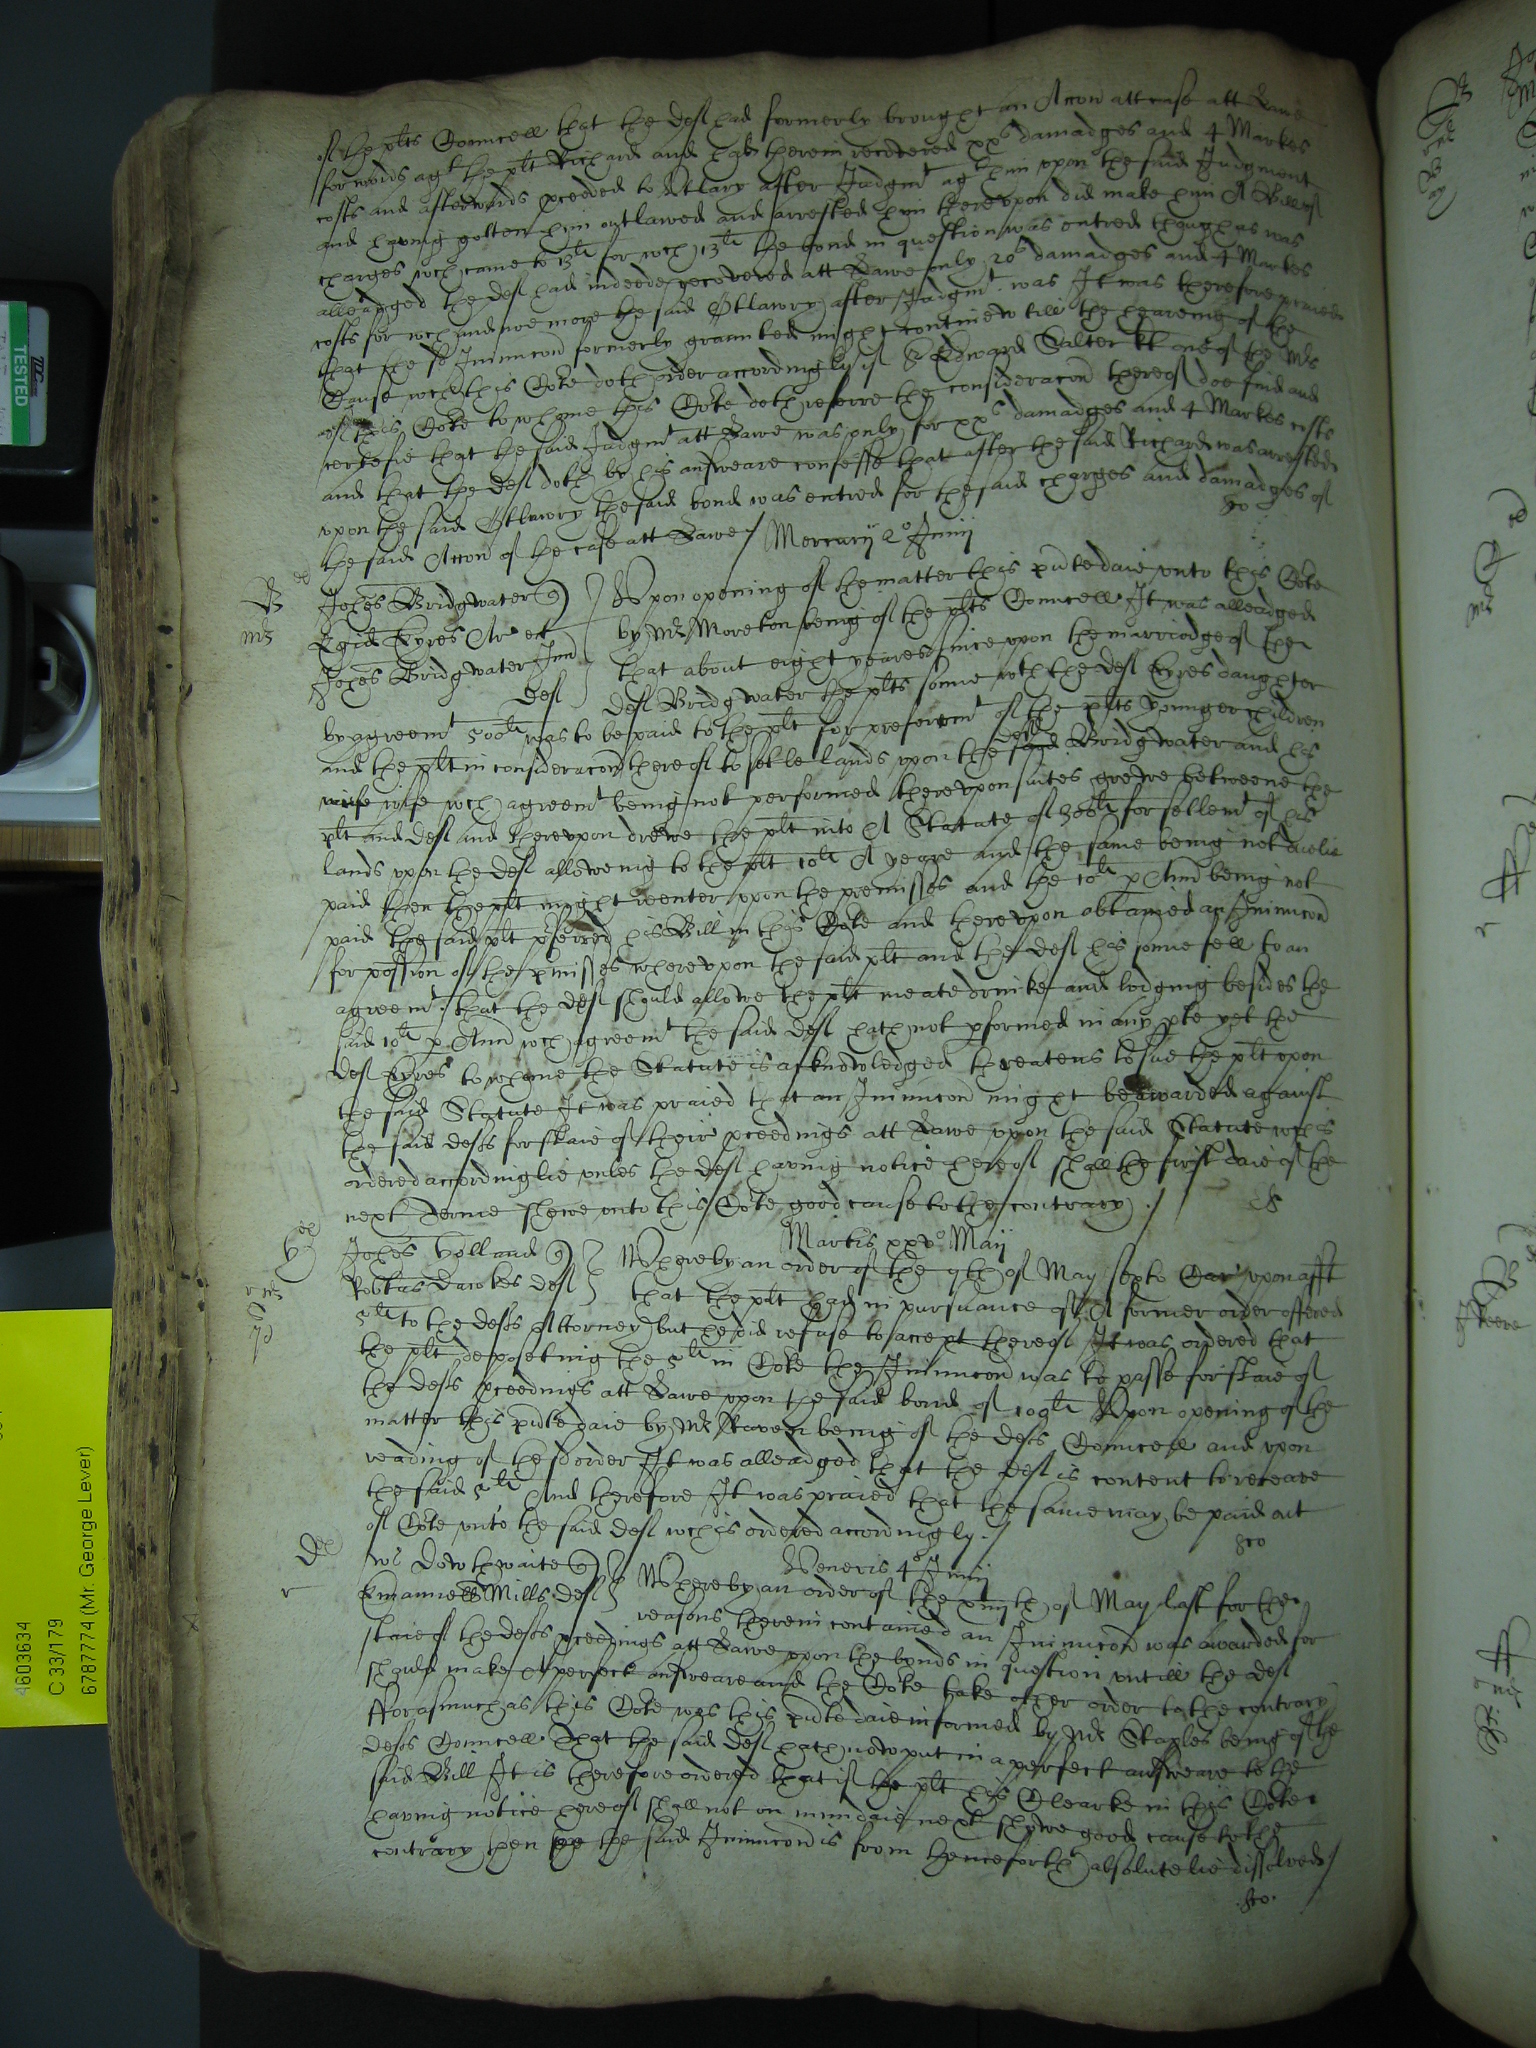 of the plts Councell that the deft had formerly brought an Accon att case att Lawe
for words agt the plt Richard and hath therein recovered xxs damadges and 4 Markes
costs and afterwards pceeded to Utlary after Judgmt agt him upon the said Judgment
and having gotten him outlawed and arrested him thereupon did make him A Bill of
charges wch came to 13li for wch 13li the bond in question was entred though as was
alleadged the deft had indeede recovered att Lawe only 20s damadges and 4 Markes
costs for wch and noe more the said Utlawry after Judgmt was It was therefore praied
that the sd Iniunccon formerly graunted might continew till the heareing of the
Cause wch this Cote doth order accordingly if Sr Edward Salter kt one of the Mrs
of this Cote to whome this Cote doth referre the consideracon thereof doe find and
certefie that the said Judgmt att Lawe was only for xxs damadges and 4 Markes costs
and that the deft doth by his answeare confesse that after the said Richard was arrested
upon the said Utlawry the said bond was entred for the said charges and damadges of
the said Accon of the case att Lawe /
Mercurij 2o Junij
Johes Bridgwater q Upon opening of the matter this pnte daie unto this Cote
Egid Eyres Ar et by Mr Moreton being of the plts Councell It was alleadged
Johes Bridgwater Jun that about eight yeares since upon the marriadge of the
deft deft Bridgwater the plts sonne wth the deft Eyres daughter
by agreemt 500li was to be paid to the plt for preferremt of the plts younger children
and the plt in consideracon thereof to setle lands upon the said deft Bridgwater and his
wife wch agreemt being not performed thereupon suites grewe betweene the
plt and deft and thereupon drewe the plt into A Statute of 300li for setlemt of his
lands upon the deft alloweing to the plt 10li A yeare and the same being not duelie
paid then the plt might reenter upon the premisses and the 10li p Ann being not
paid the said plt pferred his Bill in this Cote and thereupon obtained an Iniunccon
for possion of the pmisses whereupon the said plt and the deft his sonne fell to an
agreemt that the deft should allowe the plt meate drinke and lodging besides the
said 10li p Ann wch agreemt the said deft hath not pformed in any pte yet the
deft Eyres to whome the Statute is acknowledged threatens to sue the plt upon
the said Statute It was praied that an Iniunccon might be awarded against
the said defts for staie of their pceedings att Lawe upon the said Statute wch is
ordered accordinglie unles the deft having notice hereof shall the first daie of the
next Terme shewe unto this Cote good cause to the contrary /
Martis xxvo Maij
Johes Holland q Whereby an order of the 9th of May septo Car upon afft
Robtus deft that the plt had in pursuance of A former order offered
5li to the defts Attorney but he did refuse to accept thereof It was ordered that
the plt deposeting the 5li in Cote the Iniunccon was to passe for staie of
the defts pceedings att Lawe upon the said bond of 100li Upon opening of the
matter this pnte daie by Mr being of the defts Councell and upon
reading of the sd order It was alleadged that the deft is content to receave
the said 5li And therefore It was praied that the same may be paid out
of Cote unto the said deft wch is ordered accordingly /
Veneris 4o Junij
Wm Dowthwaite q Whereby an order of the xiiijth of May last for the
Emanuell Mills deft reasons therein contained an Iniunccon was awarded for
staie of the defts pceedings att Lawe upon the bonds in question untill the deft
should make A perfect answeare and the Cote take other order to the contrary
Fforasmuch as this Cote was this pnte daie informed by Mr Staples being of the
defts Councell That the said deft hath now put in a perfect answeare to the
said Bill It is therefore ordered that if the plt his Clearke in this Cote
having notice hereof shall not on mundaie next shewe good cause to the
contrary then the said Iniunccon is from henceforth absolutelie dissolved /
TESTED
4603634
C 33/179
6787774 (Mr. George Lever)